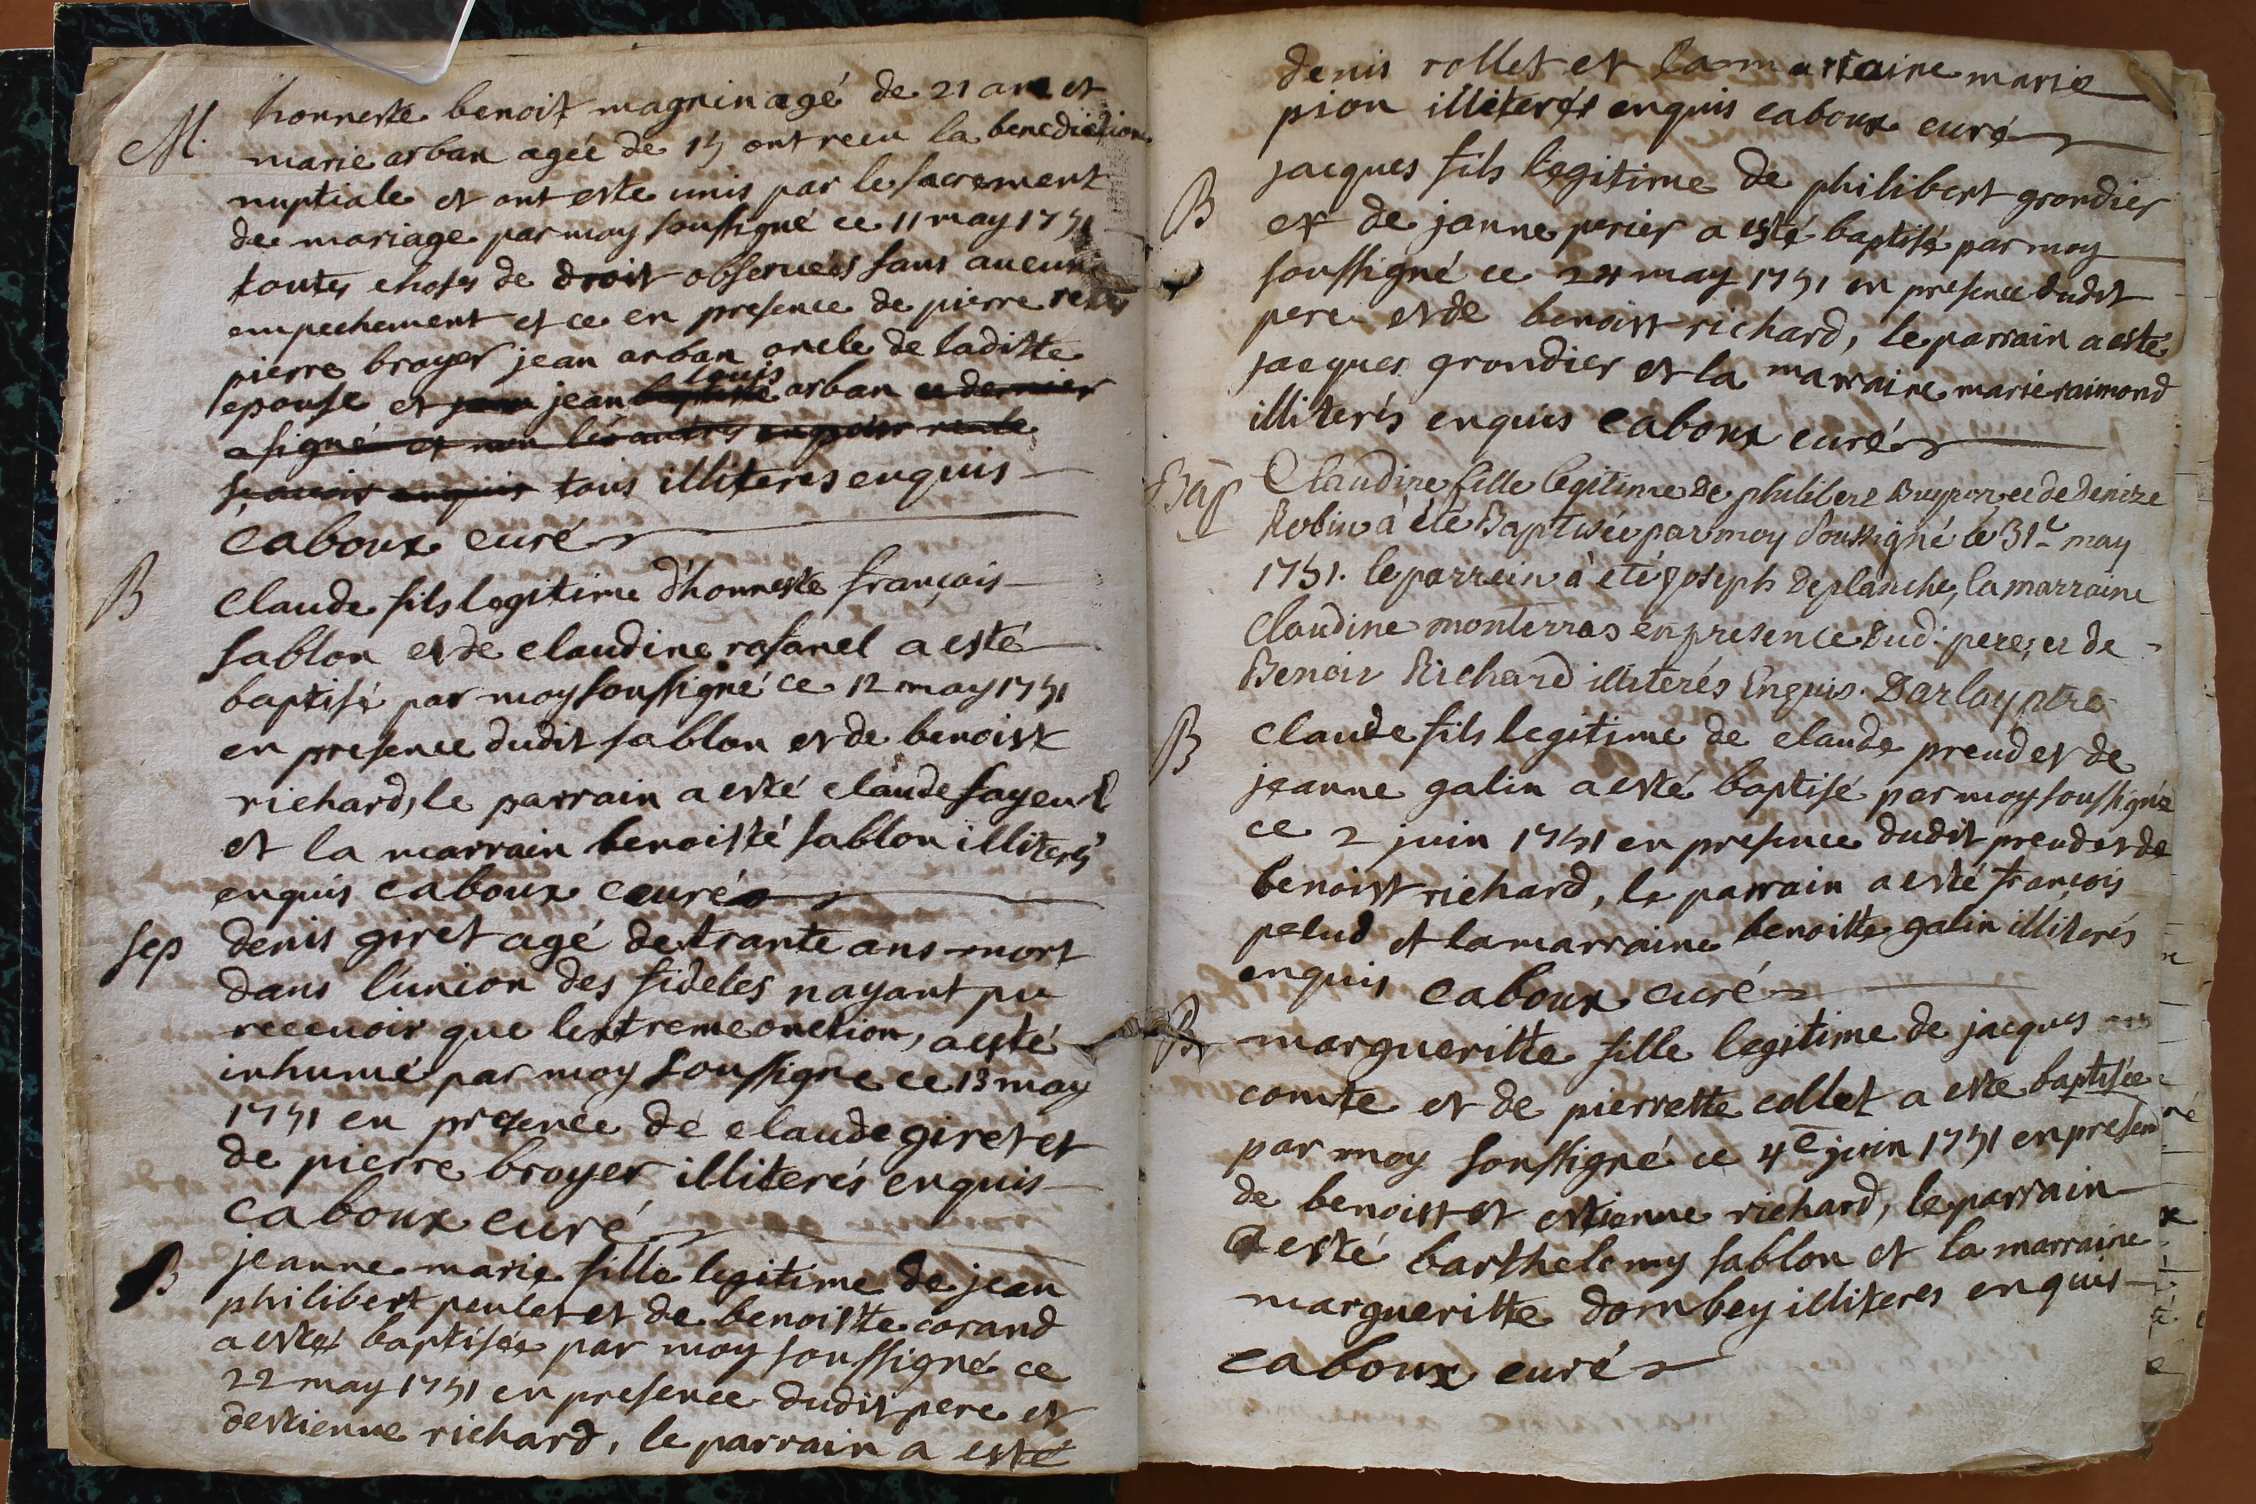 M. honneste benoit magnin agé de 21 ans et
marie arban agée de 15 ont recu la benediction
nuptiale et ont esté unis par le sacrement
de mariage par moy soussigné ce 11 may 1751
toutes choses de droit observées sans aucun
empechement et ce en presence de pierre
pierre broyer jean arban oncle de laditte
epouse et jean louis arban ce dernier
a signé et non les autres
sçavoir enquis tous illiteres enquis
caboux curé
B claude fils legitime d'honneste françois
sablon et de claudine rosanel a esté
baptisé par moy soussigné ce 12 may 1751
en presence dudit sablon et de benoist
richard, le parrain a esté claude fayeul
et la marrain benoisté sablon illiterés
enquis caboux curé
sep denis giret agé de trante ans mort
dans l'union des fideles nayant pu
recevoir que lextreme onction, a esté
inhumé par moy soussigne ce 13 may
1751 en presence de claude giret et
de pierre broyer illiterés enquis
caboux curé
B jeanne marie fille legitime de jean
philibert peulet et de benoistte corand
a esté baptisée par moy soussigné ce
22 may 1751 en presence dudit pere et
destienne richard, le parrain a esté
denis rollet et la marraine marie
pion illiterés enquis caboux curé
B jacques fils legitime de philibert grondier
et de janne perier a esté baptisé par moy
soussigné ce 24 may 1751 en presence dudit
pere et de benoist richard, le parrain a esté
jacques grondier et la marraine marie raimond
illiterés enquis caboux curé
Bap Claudine fille legitime de philibert Buyron et de denize
Robin à été Baptisée par moy soussigné le 31e may
1751. le parrein à eté joseph deplanche, la marraine
Claudine monterras en presence dud. pere, et de
Benoit Richard illiterés Enquis. Darlay ptre
B claude fils legitime de claude preud et de
jeanne galin a esté baptisé par moy soussigné
ce 2 juin 1751 en presence dudit preud et de
benoist richard, le parrain a esté françois
pelud et la marraine benoitte galin illiterés
enquis caboux curé
B margueritte fille legitime de jacques
comte et de pierrette collet a esté baptisée
par moy soussigné ce 4e juin 1751 en presence
de benoist et estienne richard, le parrain
a esté barthelemy sablon et la marraine
margueritte dombey illiteres enquis
caboux curé